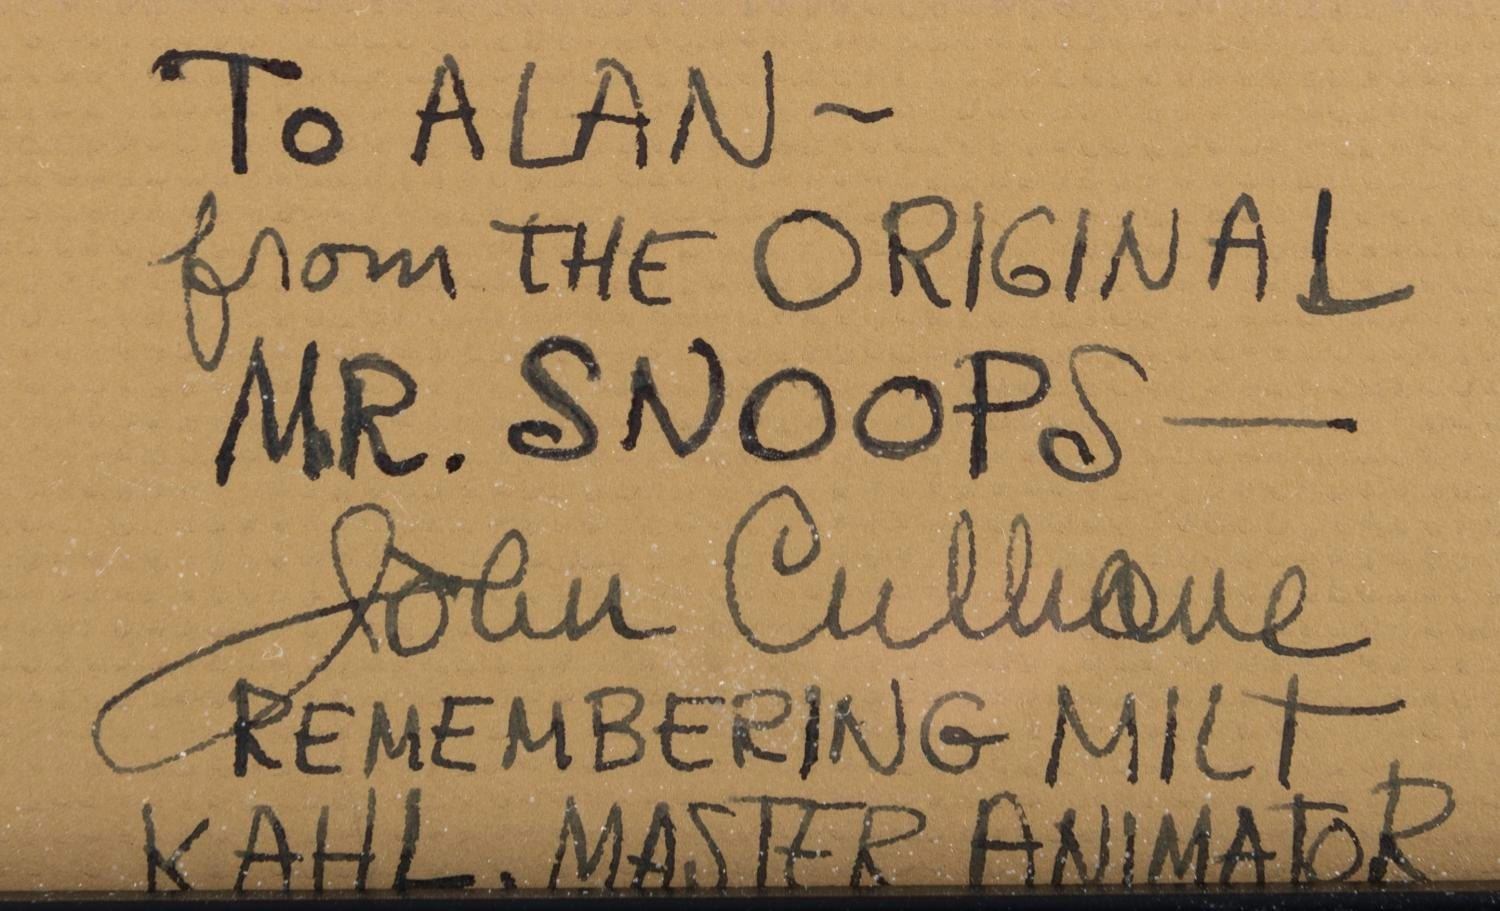 To ALAN ~
from THE ORIGINAL
MR. SNOOPS —
John Culhane
REMEMBERING MILT
KAHL, MASTER ANIMATOR